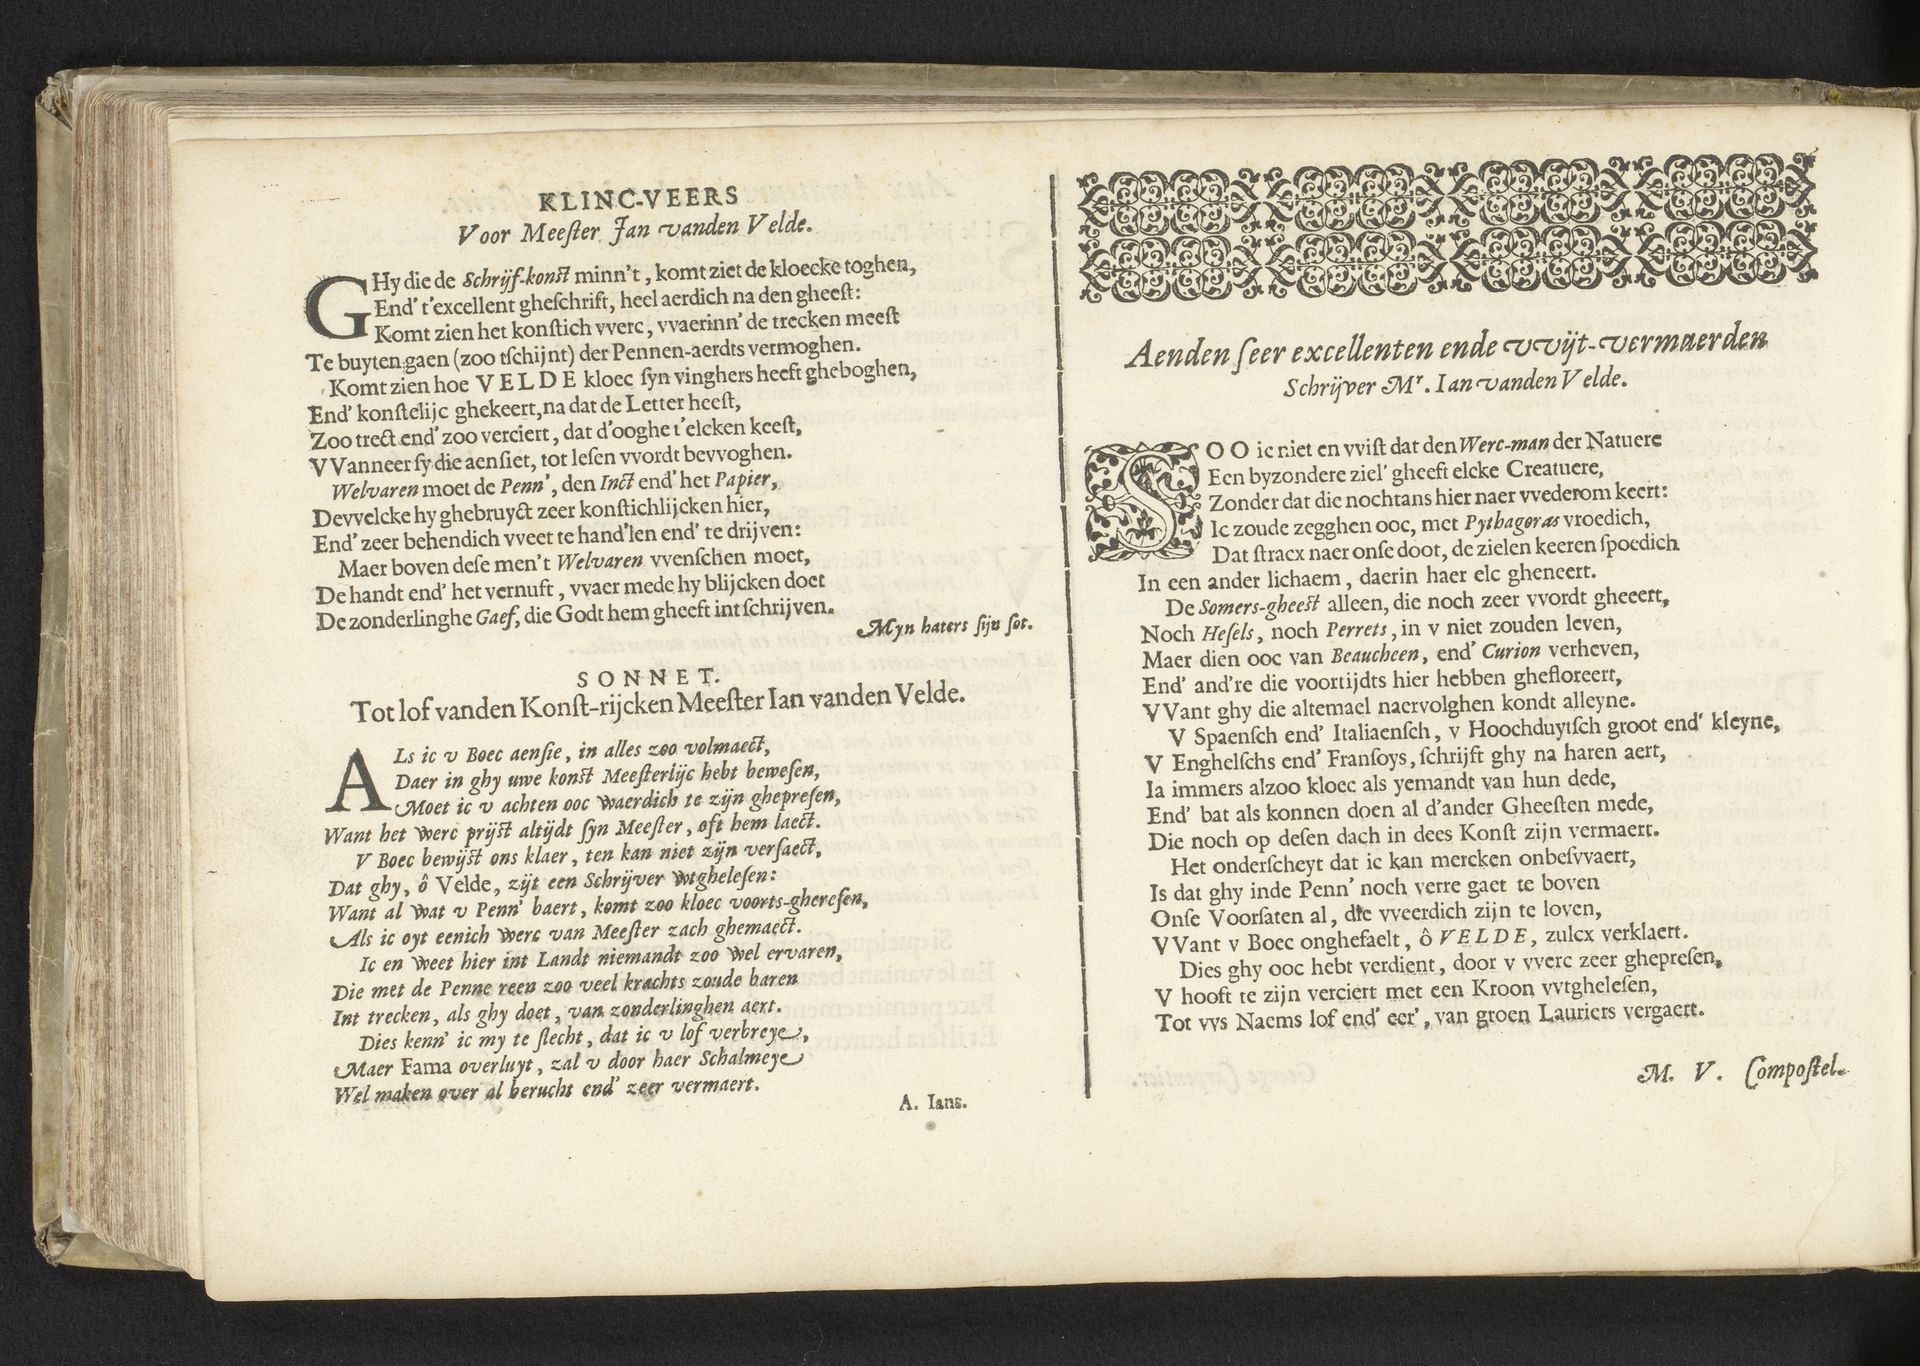 KLINC-VEERS
Voor Meeſter Jan vanden Velde.
GHy die de Schrijf-konſt minn't, komt ziet de kloecke toghen,
End' t'excellent gheſchrift, heel aerdich na den gheeſt:
Komt zien het konſtich vverc, vvaerinn' de trecken meeſt
Te buyten gaen (zoo tſchijnt) der Pennen-aerdts vermoghen.
Komt zien hoe VELDE kloec ſyn vinghers heeft gheboghen,
End' konſtelijc ghekeert, na dat de Letter heeſt,
Zoo trect end' zoo verciert, dat d'ooghe t'elcken keeſt,
VVanneer ſy die aenſiet, tot leſen vvordt bevvoghen.
Welvaren moet de Penn', den Inct end' het Papier,
Devvelcke hy ghebruyct zeer konſtichlijcken hier,
End' zeer behendich vveet te hand'len end' te drijven:
Maer boven deſe men't Welvaren vvenſchen moet,
De handt end' het vernuft, vvaer mede hy blijcken doet
De zonderlinghe Gaef, die Godt hem gheeft int ſchrijven.
Myn haters ſijn ſot.
SONNET.
Tot lof vanden Konſt-rijcken Meeſter Ian vanden Velde.
ALs ic v Boec aenſie, in alles zoo volmaect,
Daer in ghy uwe konſt Meeſterlijc hebt beweſen,
Moet ic v achten ooc waerdich te zijn ghepreſen,
Want het werc prijſt altijdt ſyn Meeſter, oft hem laect.
V Boec bewijſt ons klaer, ten kan niet zijn verſaect,
Dat ghy, ô Velde, zijt een Schrijver wtgheleſen:
Want al wat v Penn' baert, komt zoo kloec voorts-ghereſen,
Als ic oyt eenich werc van Meeſter zach ghemaect.
Ic en weet hier int Landt niemandt zoo wel ervaren,
Die met de Penne reen zoo veel krachts zoude baren
Int trecken, als ghy doet, van zonderlinghen aert.
Dies kenn' ic my te ſlecht, dat ic v lof verbreye,
Maer Fama overluyt, zal v door haer Schalmeye
Wel maken over al berucht end' zeer vermaert.
A. Ians.
Aenden ſeer excellenten ende vvijt-vermaerden
Schrijver Mr. Ian vanden Velde.
SOO ic niet en vviſt dat den Werc-man der Natuere
Een byzondere ziel' gheeft elcke Creatuere,
Zonder dat die nochtans hier naer vvederom keert:
Ic zoude zegghen ooc, met Pythagoras vroedich,
Dat ſtracx naer onſe doot, de zielen keeren ſpoedich
In een ander lichaem, daerin haer elc gheneert.
De Somers-gheeſt alleen, die noch zeer vvordt gheeert,
Noch Heſels, noch Perrets, in v niet zouden leven,
Maer dien ooc van Beaucheen, end' Curion verheven,
End' and're die voortijdts hier hebben ghefloreert,
VVant ghy die altemael naervolghen kondt alleyne.
V Spaenſch end' Italiaenſch, v Hoochduytſch groot end' kleyne,
V Enghelſchs end' Franſoys, ſchrijft ghy na haren aert,
Ia immers alzoo kloec als yemandt van hun dede,
End' bat als konnen doen al d'ander Gheeſten mede,
Die noch op deſen dach in dees Konſt zijn vermaert.
Het onderſcheyt dat ic kan mercken onbeſvvaert,
Is dat ghy inde Penn' noch verre gaet te boven
Onſe Voorſaten al, die vveerdich zijn te loven,
VVant v Boec onghefaelt, ô VELDE, zulcx verklaert.
Dies ghy ooc hebt verdient, door v vverc zeer ghepreſen,
V hooft te zijn verciert met een Kroon vvtgheleſen,
Tot vvs Naems lof end' eer', van groen Lauriers vergaert.
M. V. Compoſtel.